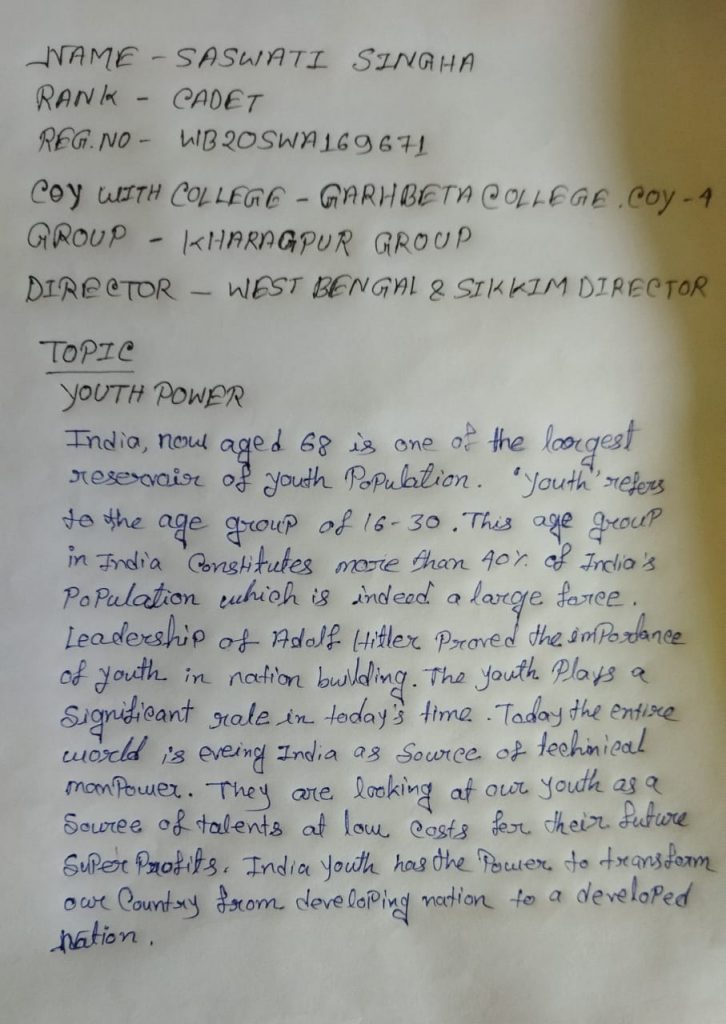 NAME - SASWATI SINGHA
RANK - CADET
REG. NO - WB20SWA169671
COY WITH COLLEGE - GARHBETA COLLEGE. COY - 4
GROUP - KHARAGPUR GROUP
DIRECTOR - WEST BENGAL & SIKKIM DIRECTOR
TOPIC
YOUTH POWER
India, now aged 68 is one of the largest
reservair of youth Population. 'Youth' refers
to the age group of 16-30. This age group
in India Constitutes more than 40% of India's
Population which is indeed a large force.
Leadership of Adolf Hitler Proved the impordance
of youth in nation building. The youth Plays a
Significant rale in today's time. Today the entire
world is eveing India as Source of techinical
manPower. They are looking at our youth as a
Source of talents at low Costs fer their future
Super Profits. India youth has the Power to transform
our Country from developing nation to a developed
nation.